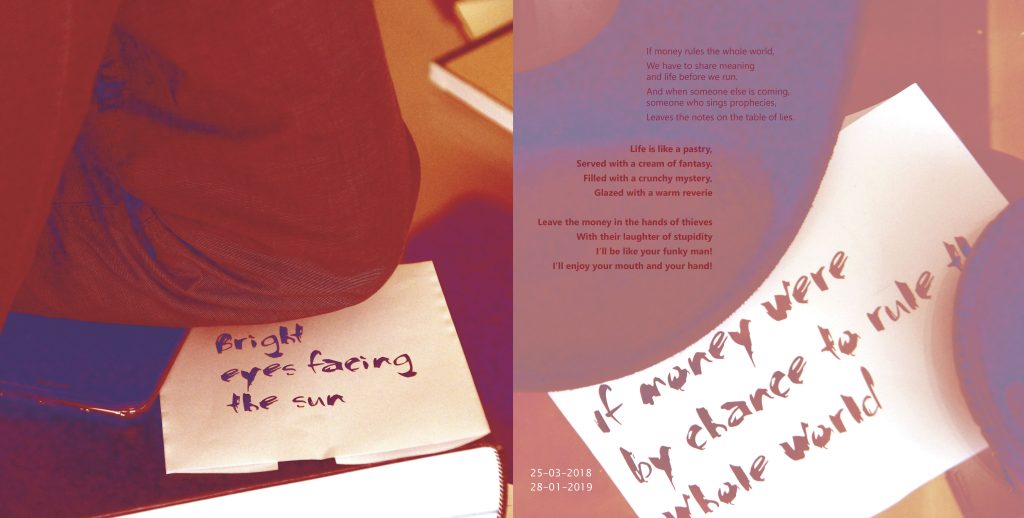 Bright
eyes facing
the sun
If money rules the whole world,
We have to share meaning
and life before we run.
And when someone else is coming,
someone who sings prophecies,
Leaves the notes on the table of lies.
Life is like a pastry,
Served with a cream of fantasy.
Filled with a crunchy mystery,
Glazed with a warm reverie
Leave the money in the hands of thieves
With their laughter of stupidity
I'll be like your funky man!
I'll enjoy your mouth and your hand!
if money were
by chance to rule
whole world
25-03-2018
28-01-2019